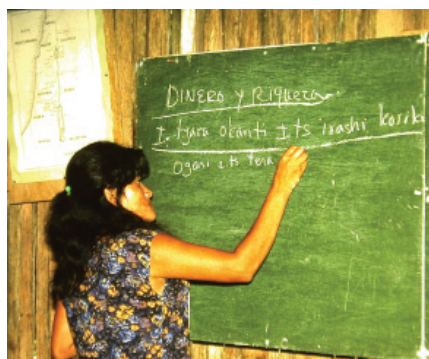 DINERO Y Riqueza.
I. tjara okanti I ts irashi koriki
Ogari i ts tena